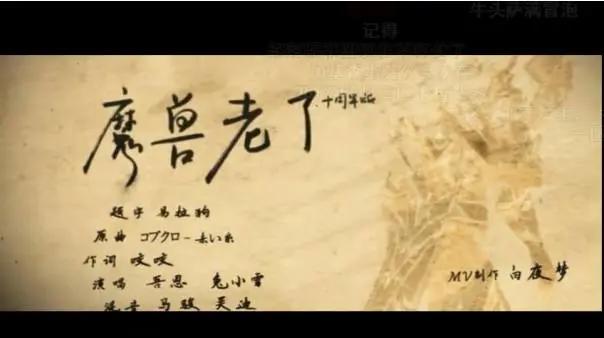 牛头萨满冒泡
记得
魔兽老了
十周年版
题字 马拉狗
原曲 コブクロ-赤い糸
作词 咬咬
演唱 吾恩 兔小雪
混音 马骏 吴迪
MV制作 白夜梦